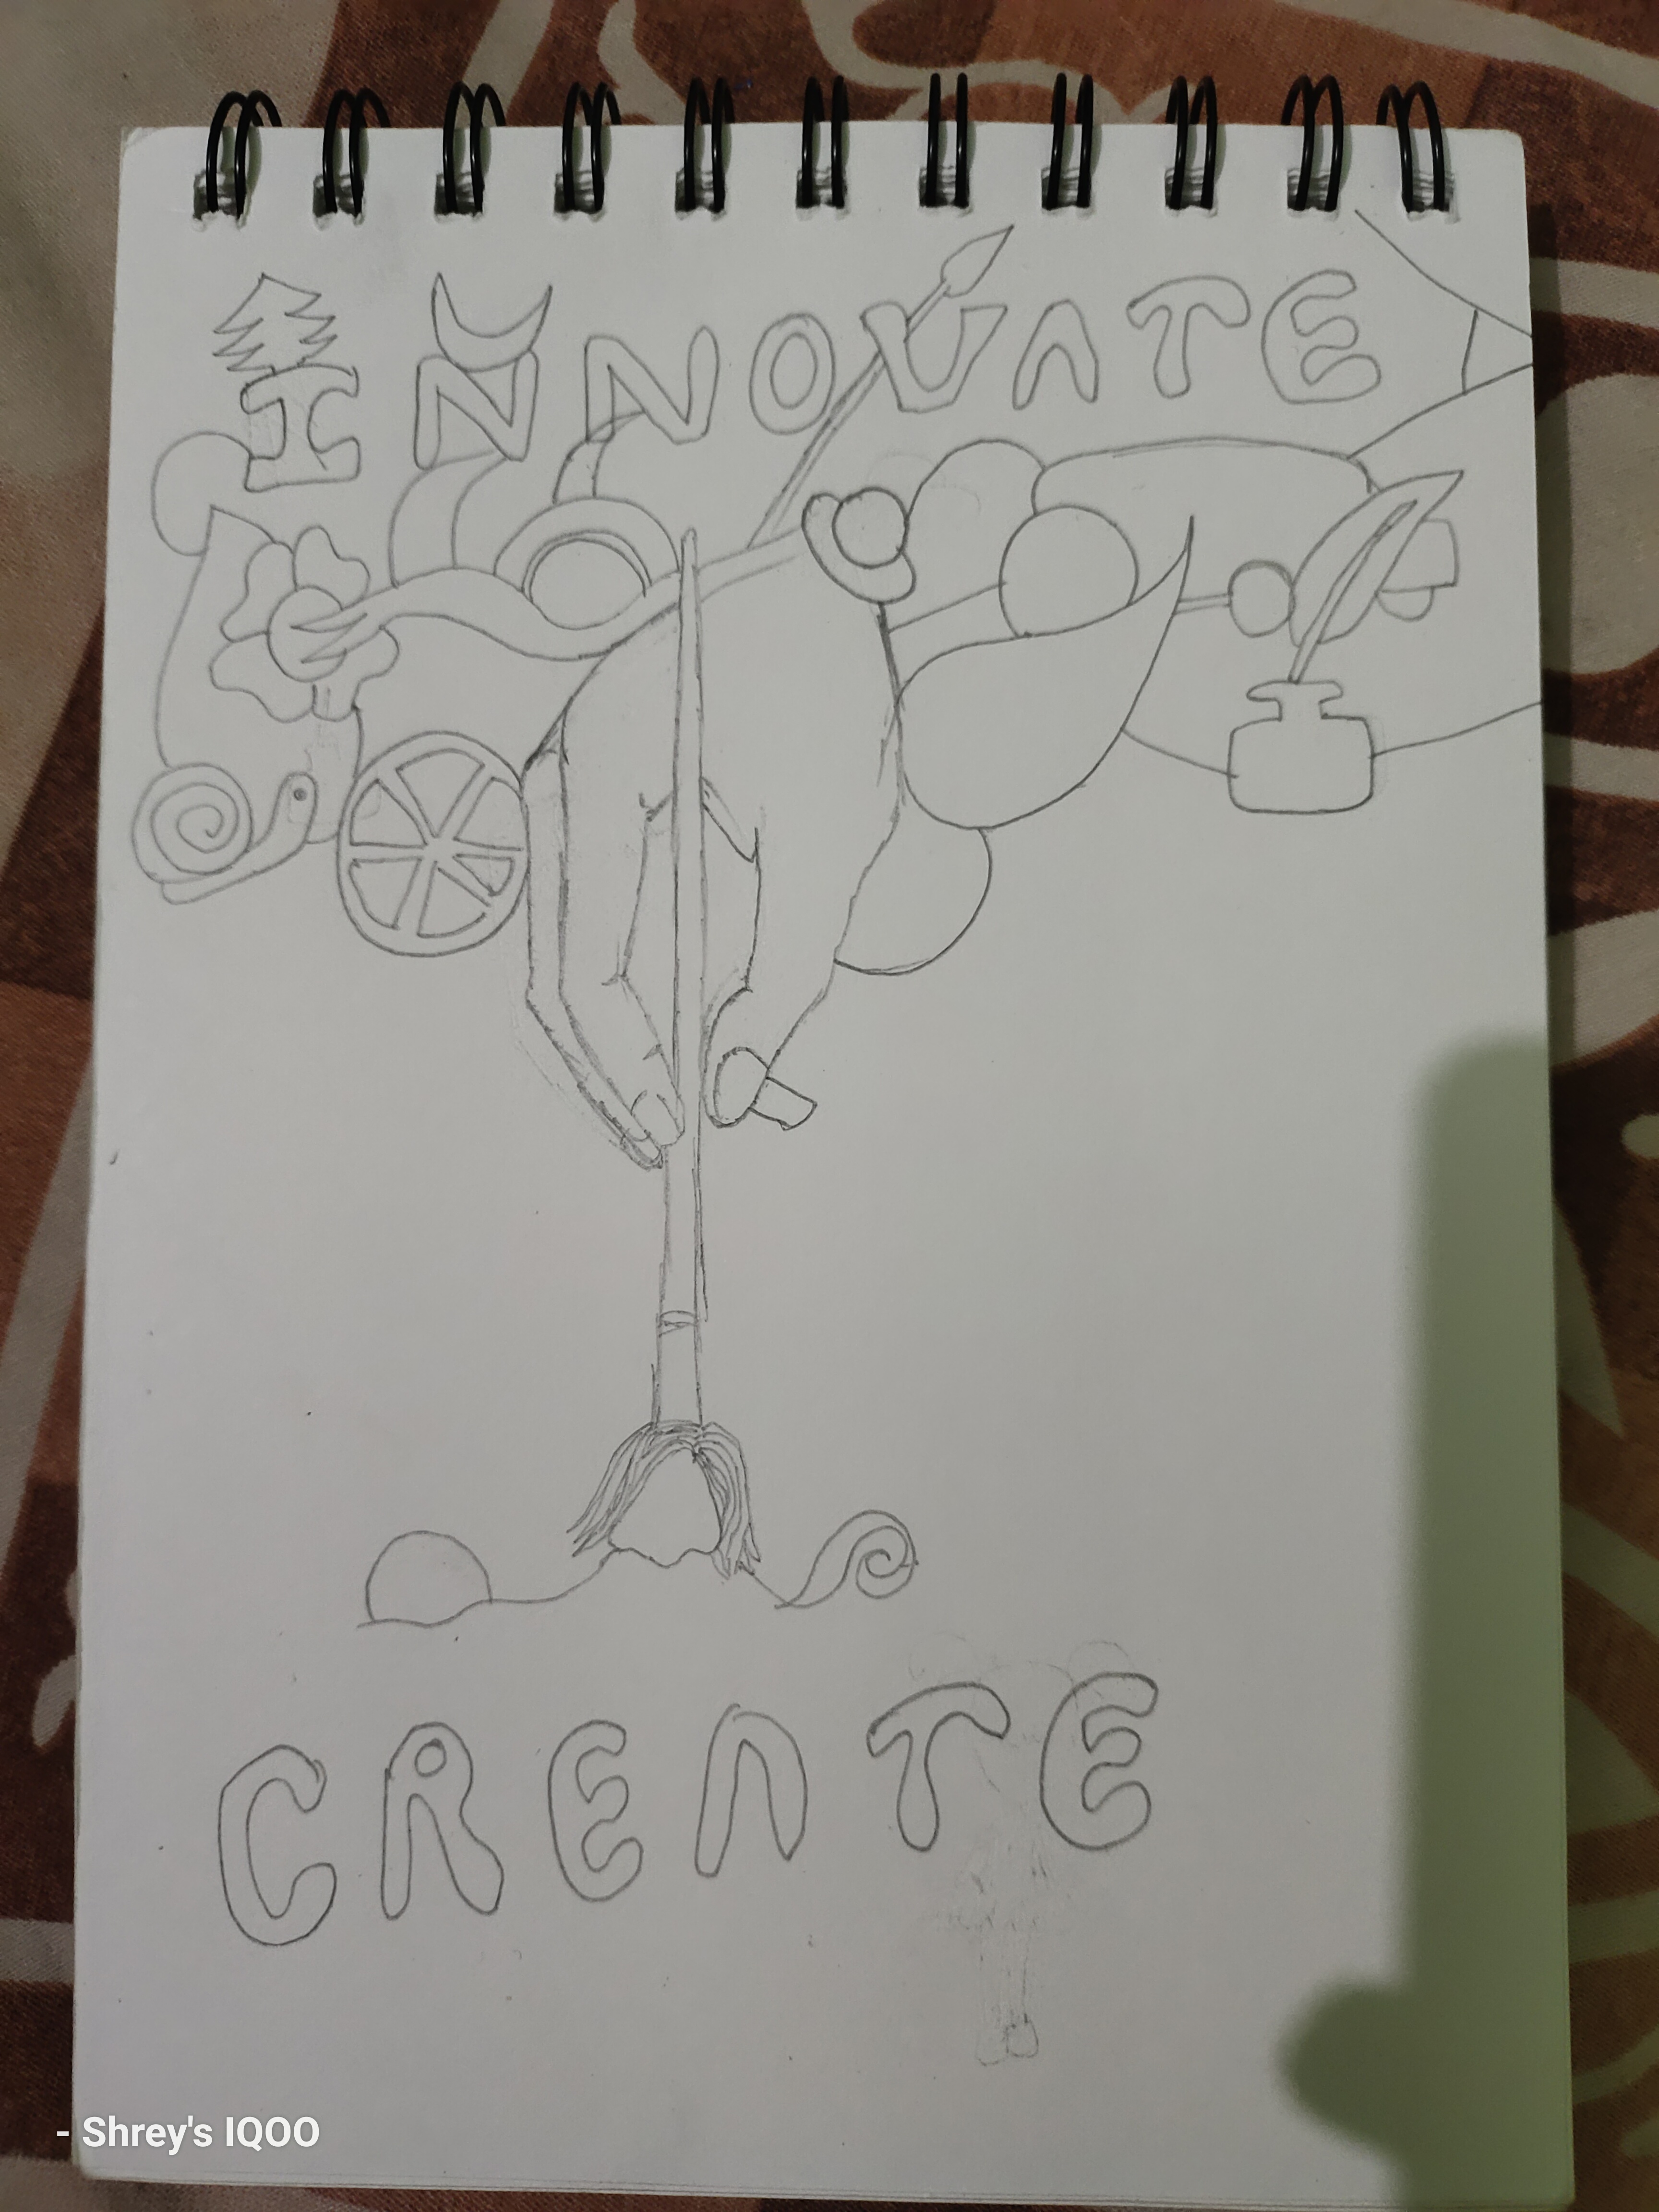 INNOVATE
CREATE
- Shrey's IQOO